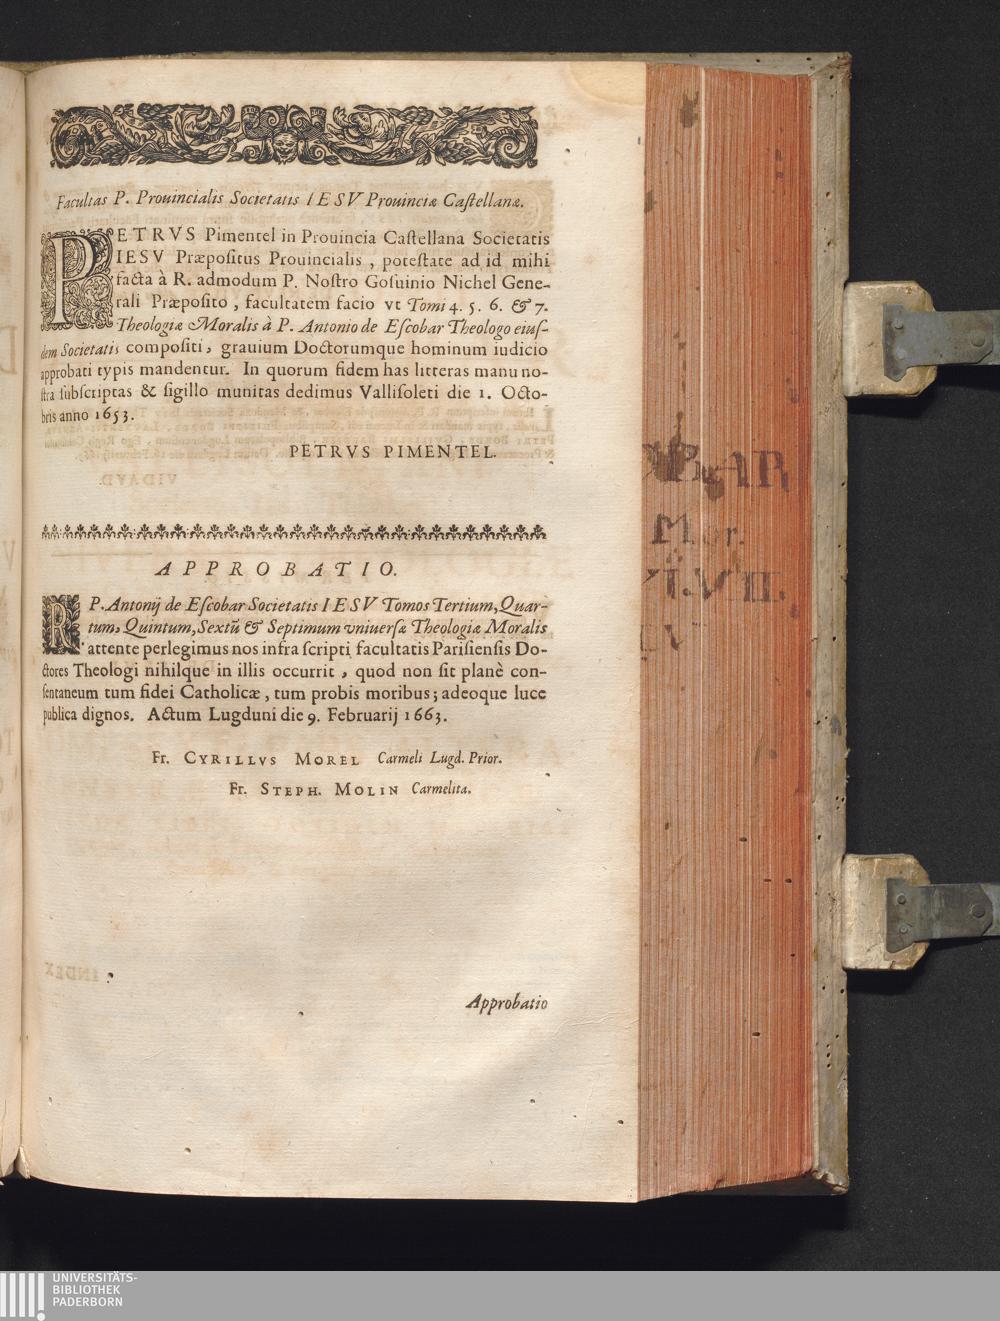 Facultas P. Prouincialis Societatis IESV Prouinciæ Caſtellanæ.
PETRVS Pimentel in Prouincia Caſtellana Societatis
IESV Præpoſitus Prouincialis, poteſtate ad id mihi
facta à R. admodum P. Noſtro Goſuinio Nichel Gene-
rali Præpoſito, facultatem facio vt Tomi 4. 5. 6. & 7.
Theologiæ Moralis à P. Antonio de Eſcobar Theologo eiuſ-
dem Societatis compoſiti, grauium Doctorumque hominum iudicio
approbati typis mandentur. In quorum fidem has litteras manu no-
ſtra ſubſcriptas & ſigillo munitas dedimus Valliſoleti die 1. Octo-
bris anno 1653.
PETRVS PIMENTEL.
APPROBATIO.
R P. Antonij de Eſcobar Societatis IESV Tomos Tertium, Quar-
tum, Quintum, Sextū & Septimum vniuerſæ Theologiæ Moralis
attente perlegimus nos infra ſcripti facultatis Pariſienſis Do-
ctores Theologi nihilque in illis occurrit, quod non ſit planè con-
ſentaneum tum fidei Catholicæ, tum probis moribus; adeoque luce
publica dignos. Actum Lugduni die 9. Februarij 1663.
Fr. CYRILLVS MOREL Carmeli Lugd. Prior.
Fr. STEPH. MOLIN Carmelita.
Approbatio
BAR
Mor.
VI.VII.
UNIVERSITÄTS-
BIBLIOTHEK
PADERBORN